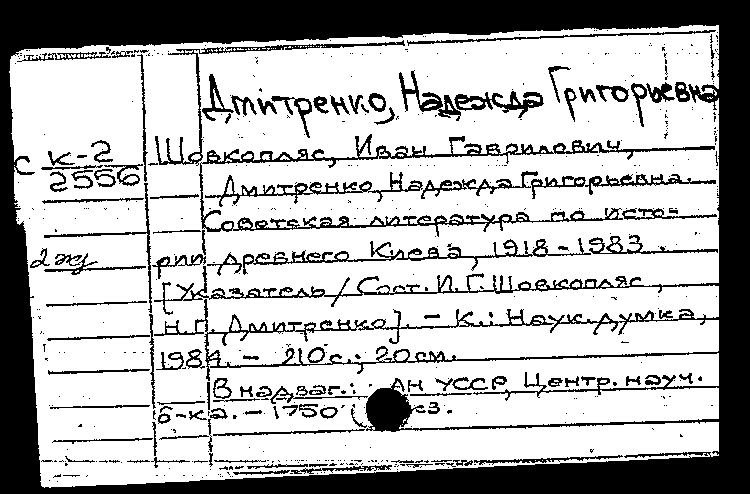 Дмитренко, Надежда Григорьевна
с к-2
2556
Шовкопляс, Иван Гаврилович,
Дмитренко, Надежда Григорьевна.
Советская литература по исто-
2 экз
рии древнего Киева, 1918-1983.
[Указатель / Сост. И.Г. Шовкопляс,
Н.Г. Дмитренко]. - К.: Наук. думка,
1984. - 210 с.; 20 см.
В надзаг.: АН УССР, Центр. науч.
б-ка. - 1750